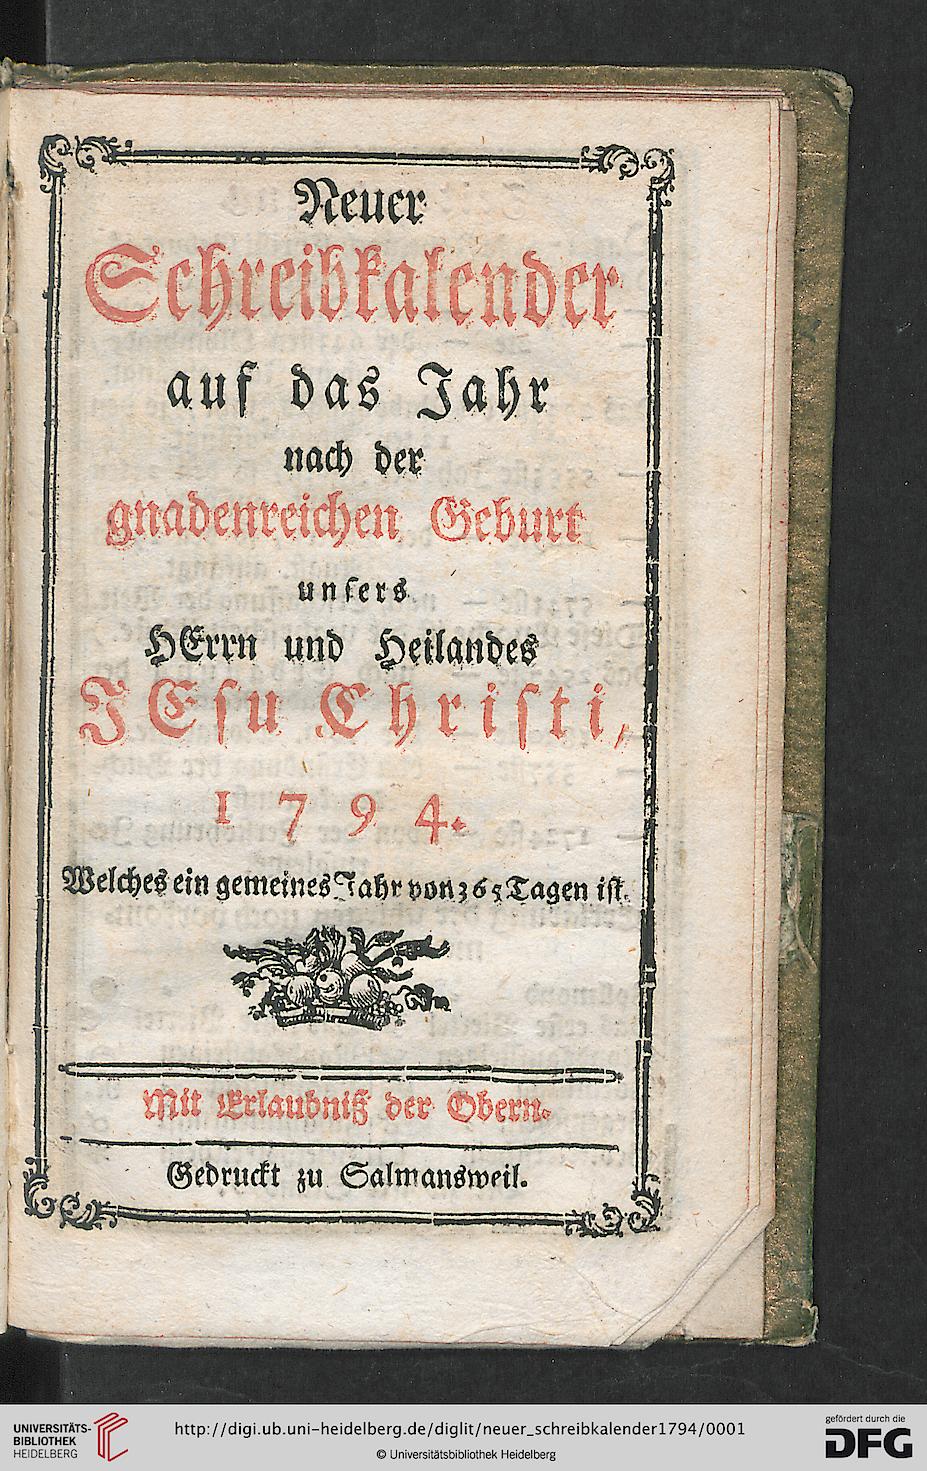 Neuer
Schreibkalender
auf das Jahr
nach der
gnadenreichen Geburt
unsers
HErrn und Heilandes
JEsu Christi,
1794.
Welches ein gemeines Jahr von 365 Tagen ist.
Mit Erlaubniß der Obern.
Gedruckt zu Salmansweil.
UNIVERSITÄTS-
BIBLIOTHEK
HEIDELBERG
http://digi.ub.uni-heidelberg.de/diglit/neuer_schreibkalender1794/0001
© Universitätsbibliothek Heidelberg
gefördert durch die
DFG